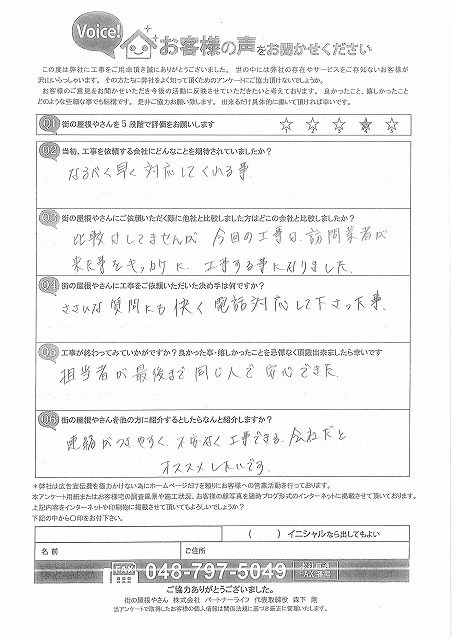 Voice!
お客様の声をお聞かせください
この度は弊社に工事をご用命頂き誠にありがとうございました。世の中には弊社の存在やサービスをご存知ないお客様が
沢山いらっしゃいます。その方たちに弊社をよく知って頂くためのアンケートにご協力頂けないでしょうか。
お客様のご意見をお聞かせいただき今後の活動に反映させていただきたいと考えております。良かったこと、嬉しかったこと
どのような些細な事でも結構です。是非ご協力お願い致します。出来るだけ具体的に書いて頂ければ幸いです。
Q1 街の屋根やさんを5段階で評価をお願いします ☆ ☆ ☆ ☆ ☆
Q2 当初、工事を依頼する会社にどんなことを期待されていましたか?
なるべく早く対応してくれる事
Q3 街の屋根やさんにご依頼いただく際に他社と比較しました方はどこの会社と比較しましたか?
比較はしてませんが 今回の工事は、訪問業者が
来た事をキッカケに、工事する事になりました。
Q4 街の屋根やさんに工事をご依頼いただいた決め手は何ですか?
ささいな質問にも快く電話対応して下さった事。
Q5 工事が終わってみていかがですか?良かった事・嬉しかったことを忌憚なく頂戴出来ましたら幸いです
担当者が最後まで同じ人で安心できた。
Q6 街の屋根やさんを他の方に紹介するとしたらなんと紹介しますか?
連絡がつきやすく、不安なく工事できる会社だと
オススメしたいです。
*弊社は広告宣伝費を極力かけない為にホームページだけを頼りにお客様への営業活動を行っております。
本アンケート用紙またはお客様宅の調査風景や施工状況、お客様の顔写真を随時ブログ形式のインターネットに掲載させて頂いております。
上記内容をインターネットや印刷物に掲載させて頂いてもよろしいでしょうか?
下記の中から○印をお付下さい。
( ) イニシャルなら出してもよい
名 前 ご住所
FAX 048-797-5049 FAX 番号
ご協力ありがとうございました。
街の屋根やさん 株式会社 パートナーライフ 代表取締役 森下 剛
当アンケートで取得したお客様の個人情報は関係法規に基づき厳正に管理いたします。